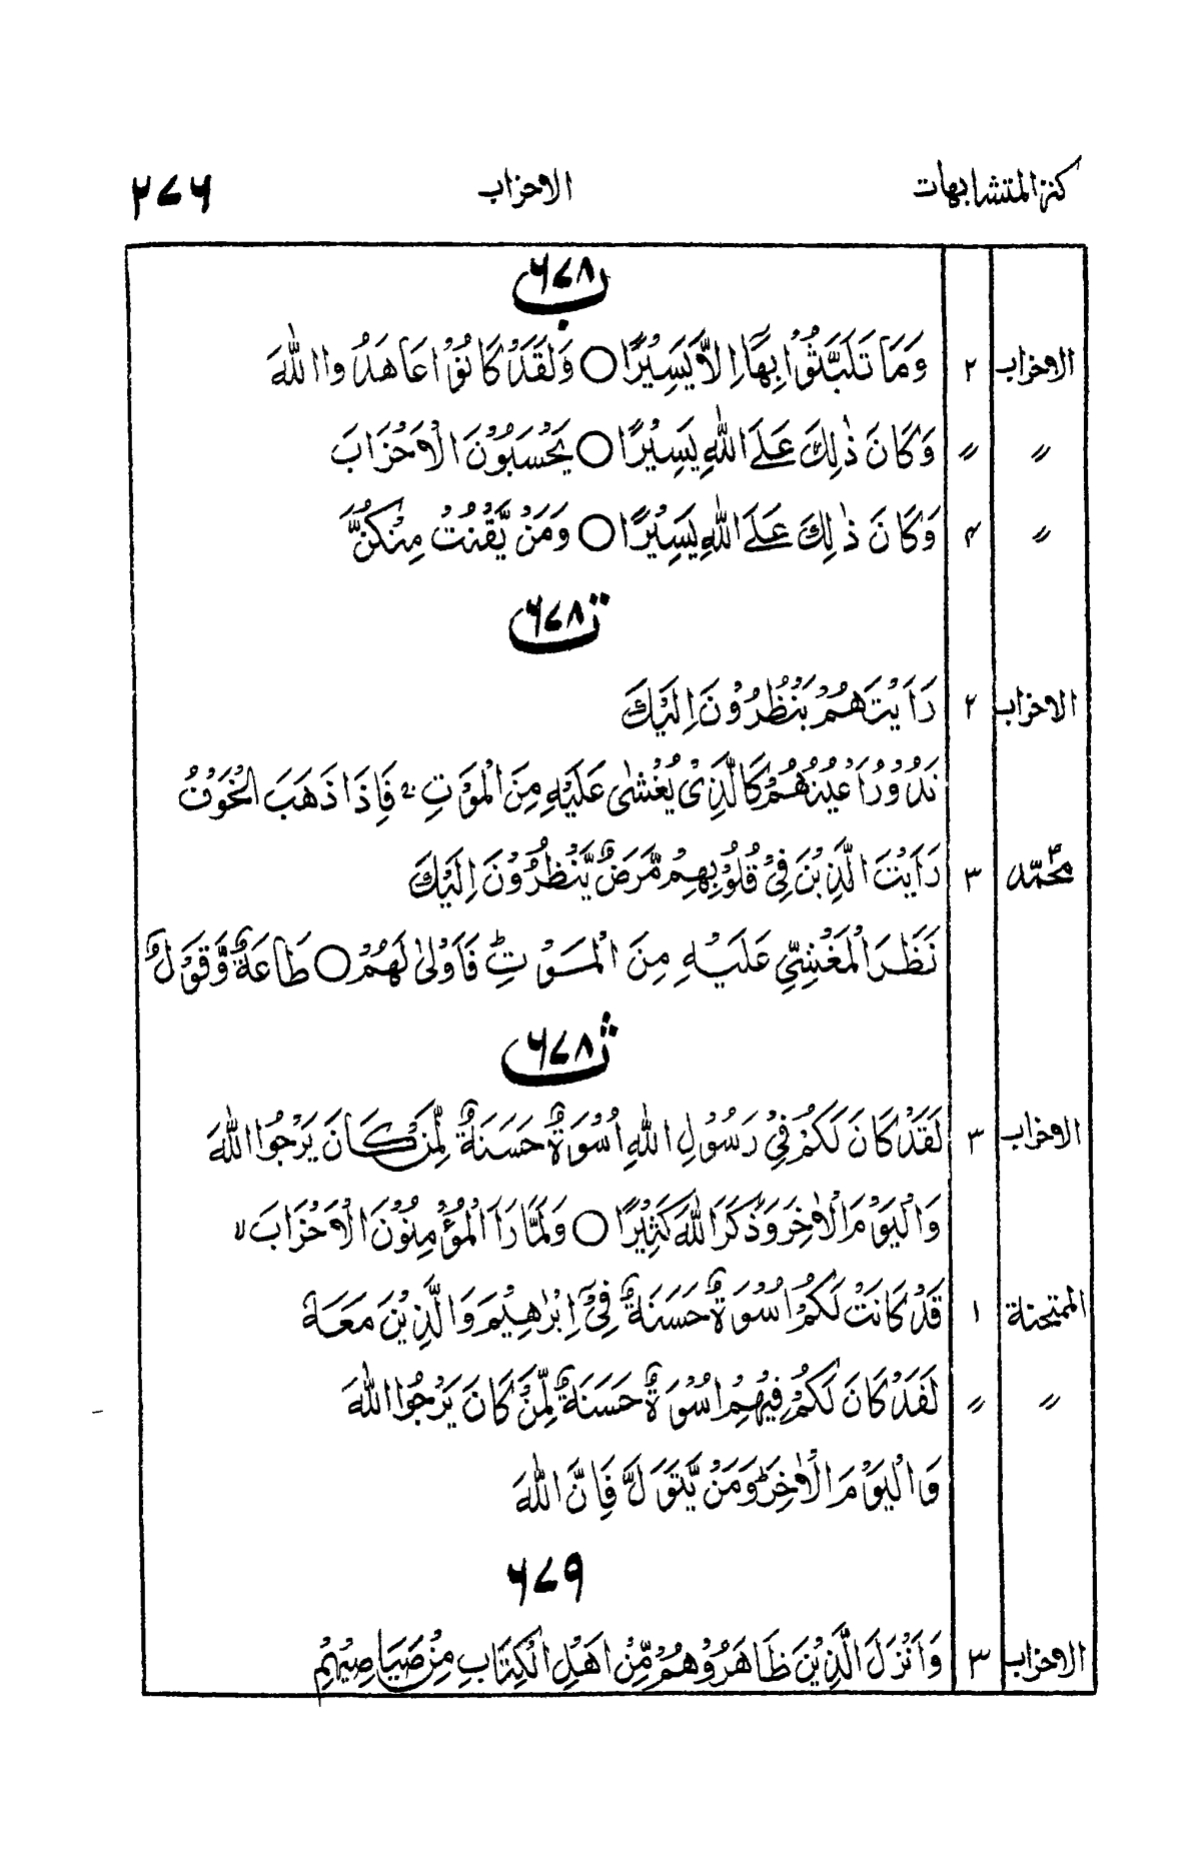 كنز المتشابهات الاحزاب ۲۷۶
۶۷۸ ب
الاحزاب ۲ وَمَا تَلَبَّثُوْا بِهَاۤ اِلَّا يَسِيْرًا ○ وَلَقَدْ كَانُوْا عَاهَدُوا اللّٰهَ
〃 〃 وَكَانَ ذٰلِكَ عَلَى اللّٰهِ يَسِيْرًا ○ يَحْسَبُوْنَ الْاَحْزَابَ
〃 ۴ وَكَانَ ذٰلِكَ عَلَى اللّٰهِ يَسِيْرًا ○ وَمَنْ يَّقْنُتْ مِنْكُنَّ
۶۷۸ ت
الاحزاب ۲ رَاَيْتَهُمْ يَنْظُرُوْنَ اِلَيْكَ
تَدُوْرُ اَعْيُنُهُمْ كَالَّذِىْ يُغْشٰى عَلَيْهِ مِنَ الْمَوْتِ ۚ فَاِذَا ذَهَبَ الْخَوْفُ
محمّد ۳ رَاَيْتَ الَّذِيْنَ فِىْ قُلُوْبِهِمْ مَّرَضٌ يَّنْظُرُوْنَ اِلَيْكَ
نَظَرَ الْمَغْشِىِّ عَلَيْهِ مِنَ الْمَوْتِ ؕ فَاَوْلٰى لَهُمْ ○ طَاعَةٌ وَّقَوْلٌ
۶۷۸ ث
الاحزاب ۳ لَقَدْ كَانَ لَكُمْ فِىْ رَسُوْلِ اللّٰهِ اُسْوَةٌ حَسَنَةٌ لِّمَنْ كَانَ يَرْجُوا اللّٰهَ
وَالْيَوْمَ الْاٰخِرَ وَذَكَرَ اللّٰهَ كَثِيْرًا ○ وَلَمَّا رَاَ الْمُؤْمِنُوْنَ الْاَحْزَابَ ۙ
الممتحنة ۱ قَدْ كَانَتْ لَكُمْ اُسْوَةٌ حَسَنَةٌ فِىْۤ اِبْرٰهِيْمَ وَالَّذِيْنَ مَعَهٗ
〃 〃 لَقَدْ كَانَ لَكُمْ فِيْهِمْ اُسْوَةٌ حَسَنَةٌ لِّمَنْ كَانَ يَرْجُوا اللّٰهَ
وَالْيَوْمَ الْاٰخِرَ ؕ وَمَنْ يَّتَوَلَّ فَاِنَّ اللّٰهَ
۶۷۹
الاحزاب ۳ وَاَنْزَلَ الَّذِيْنَ ظَاهَرُوْهُمْ مِّنْ اَهْلِ الْكِتَابِ مِنْ صَيَاصِيْهِمْ